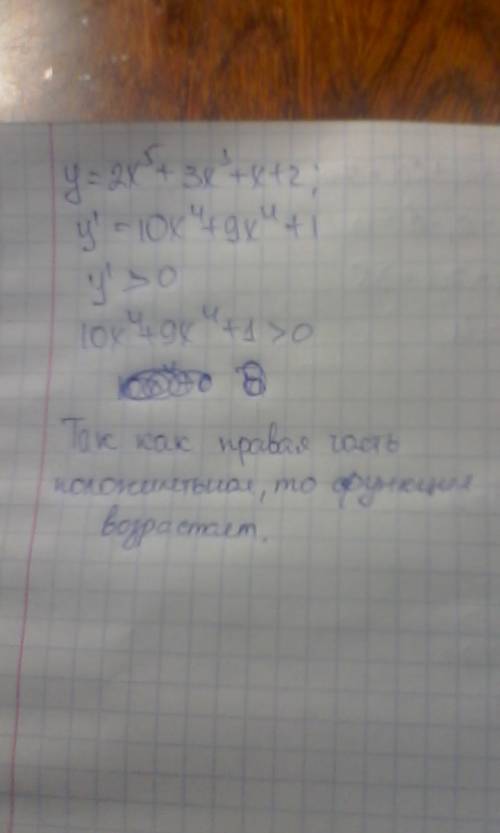 y = 2x⁵ + 3x³ + x + 2;
y' = 10x⁴ + 9x⁴ + 1
y' > 0
10x⁴ + 9x⁴ + 1 > 0
Так как правая часть
положительная, то функция
возрастает.